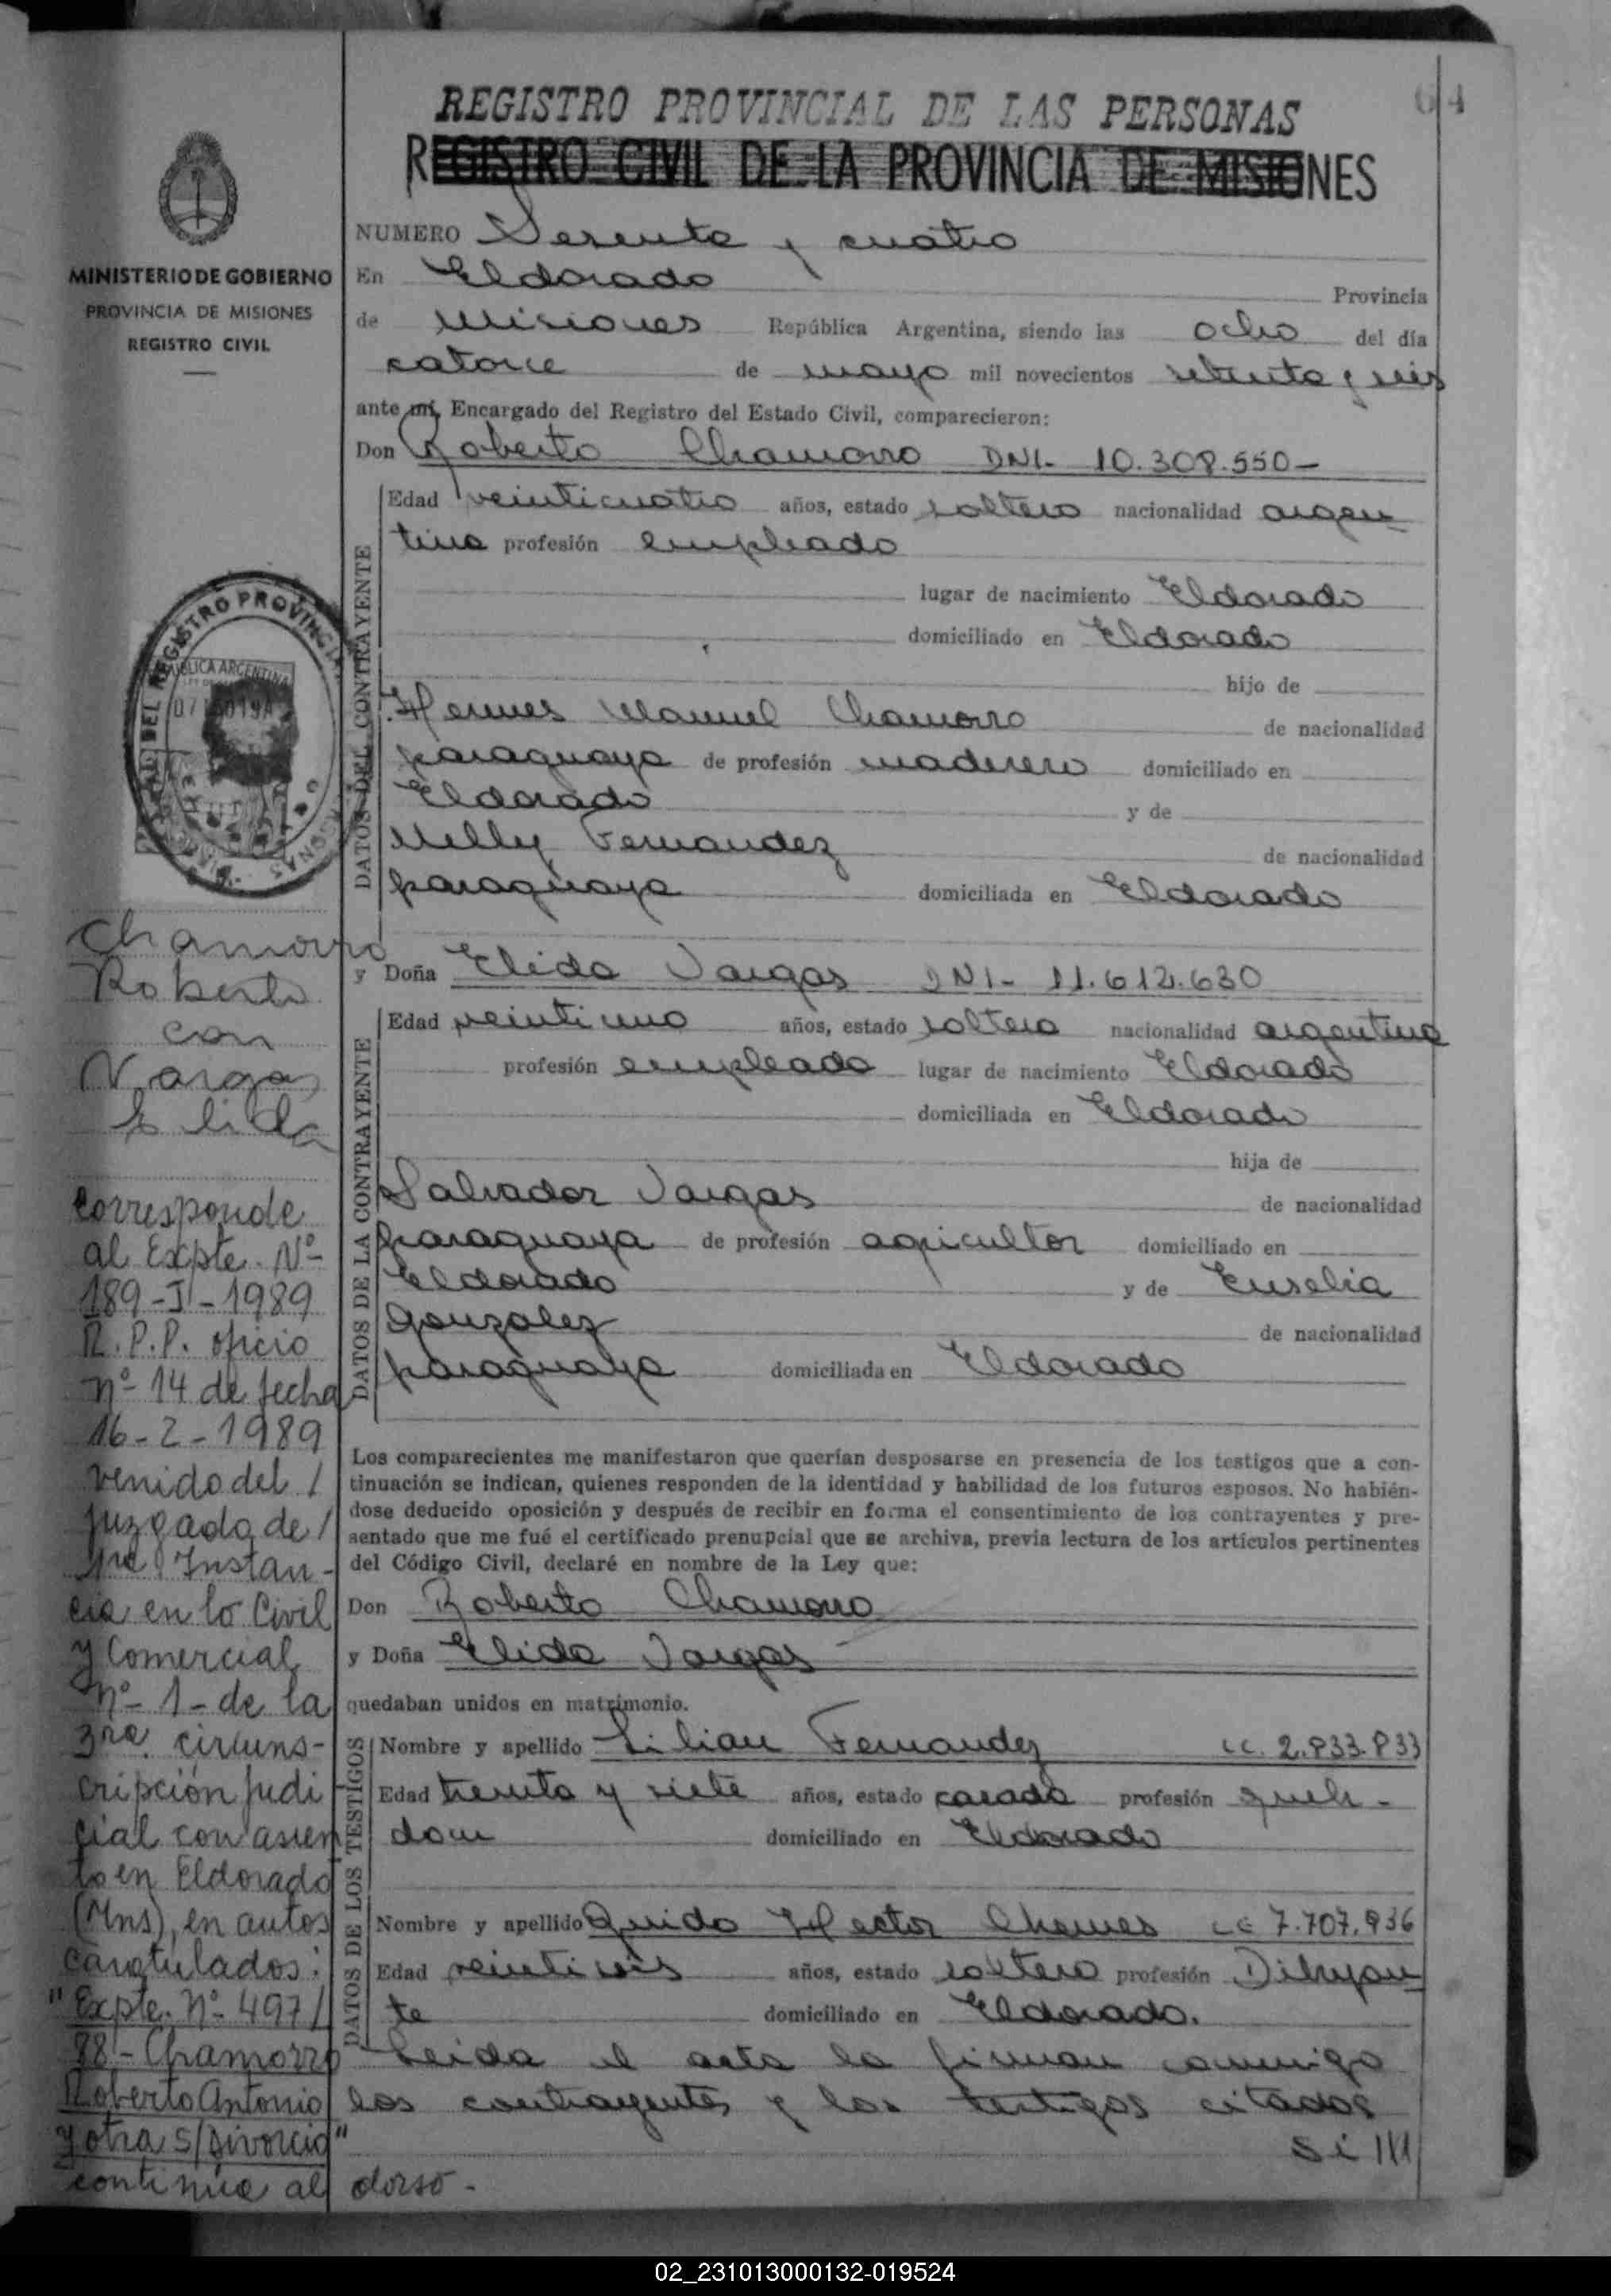 64
REGISTRO PROVINCIAL DE LAS PERSONAS
REGISTRO CIVIL DE LA PROVINCIA DE MISIONES
MINISTERIO DE GOBIERNO
PROVINCIA DE MISIONES
REGISTRO CIVIL
NUMERO Sesenta y cuatro
En Eldorado Provincia
de Misiones República Argentina, siendo las ocho del día
catorce de mayo mil novecientos setenta y seis
ante mí, Encargado del Registro del Estado Civil, comparecieron:
Don Roberto Chamorro DNI- 10.308.550-
DATOS DEL CONTRAYENTE
Edad veinticuatro años, estado soltero nacionalidad argen-
tina profesión empleado
lugar de nacimiento Eldorado
domiciliado en Eldorado
hijo de
Hermes Manuel Chamorro de nacionalidad
paraguaya de profesión maderero domiciliado en
Eldorado y de
Nelly Fernandez de nacionalidad
paraguaya domiciliada en Eldorado
y Doña Elida Vargas DNI- 11.612.630
DATOS DE LA CONTRAYENTE
Edad veintiuno años, estado soltera nacionalidad argentina
profesión empleada lugar de nacimiento Eldorado
domiciliada en Eldorado
hija de
Salvador Vargas de nacionalidad
paraguaya de profesión agricultor domiciliado en
Eldorado y de Eusebia
Gonzalez de nacionalidad
paraguaya domiciliada en Eldorado
Los comparecientes me manifestaron que querían desposarse en presencia de los testigos que a con-
tinuación se indican, quienes responden de la identidad y habilidad de los futuros esposos. No habién-
dose deducido oposición y después de recibir en forma el consentimiento de los contrayentes y pre-
sentado que me fué el certificado prenupcial que se archiva, previa lectura de los artículos pertinentes
del Código Civil, declaré en nombre de la Ley que:
Don Roberto Chamorro
y Doña Elida Vargas
quedaban unidos en matrimonio.
DATOS DE LOS TESTIGOS
Nombre y apellido Lilian Fernandez LC. 2.833.833
Edad treinta y siete años, estado casada profesión queh-
dom domiciliado en Eldorado
Nombre y apellido Guido Hector Chemes LE 7.707.936
Edad veintiseis años, estado soltero profesión Dibujan-
te domiciliado en Eldorado.
Leida el acta la firman conmigo
los contrayentes y los testigos citados
si
REGISTRO PROVINCIAL
REPUBLICA ARGENTINA
Chamorro
Roberto
con
Vargas
Elida
Corresponde
al Expte. Nº
189-I-1989
R.P.P. oficio
nº 14 de fecha
16-2-1989
venido del /
juzgado de /
1ra Instan-
cia en lo Civil
y Comercial
nº 1- de la
3ra. circuns-
cripción judi
cial con asien
to en Eldorado
(Mns), en autos
caratulados:
"Expte. Nº 497/
88- Chamorro
Roberto Antonio
y otra S/Divorcio"
continúa al dorso.-
02_231013000132-019524